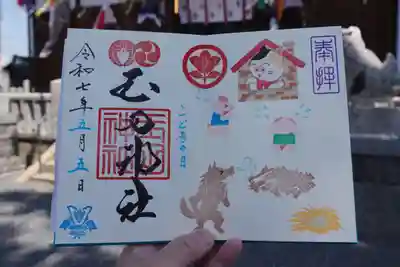 奉拝
こどもの日
玉田神社
令和七年五月五日